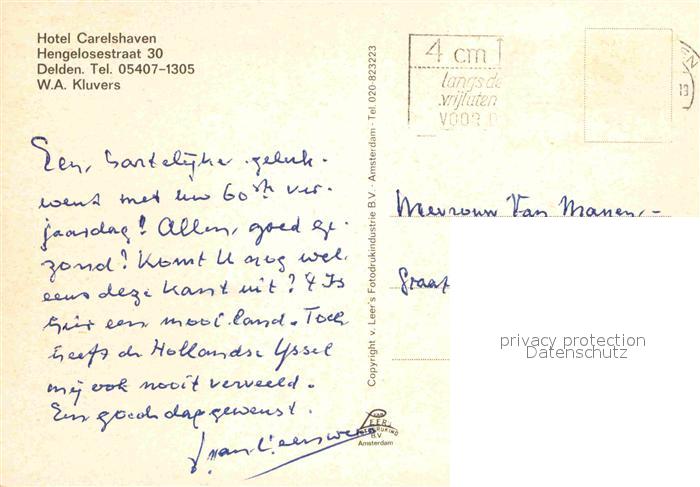 Hotel Carelshaven
Hengelosestraat 30
Delden. Tel. 05407-1305
W.A. Kluvers
4 cm
langs de
vrijlaten
VOOR
Een, hartelijke geluk-
wens met uw 60ste ver-
jaardag! Allen, goed ge-
zond? Komt U nog wel
eens deze kant uit? 't Is
hier een mooi land. Toch
heeft de Hollandse Yssel
mij ook nooit verveeld.
Een goede dag gewenst.
Copyright v. Leer's Fotodrukindustrie B.V. - Amsterdam - Tel. 020-823223
VAN
LEER
B.V
Amsterdam
Mevrouw Van Manen,-
Graaf
privacy protection
Datenschutz